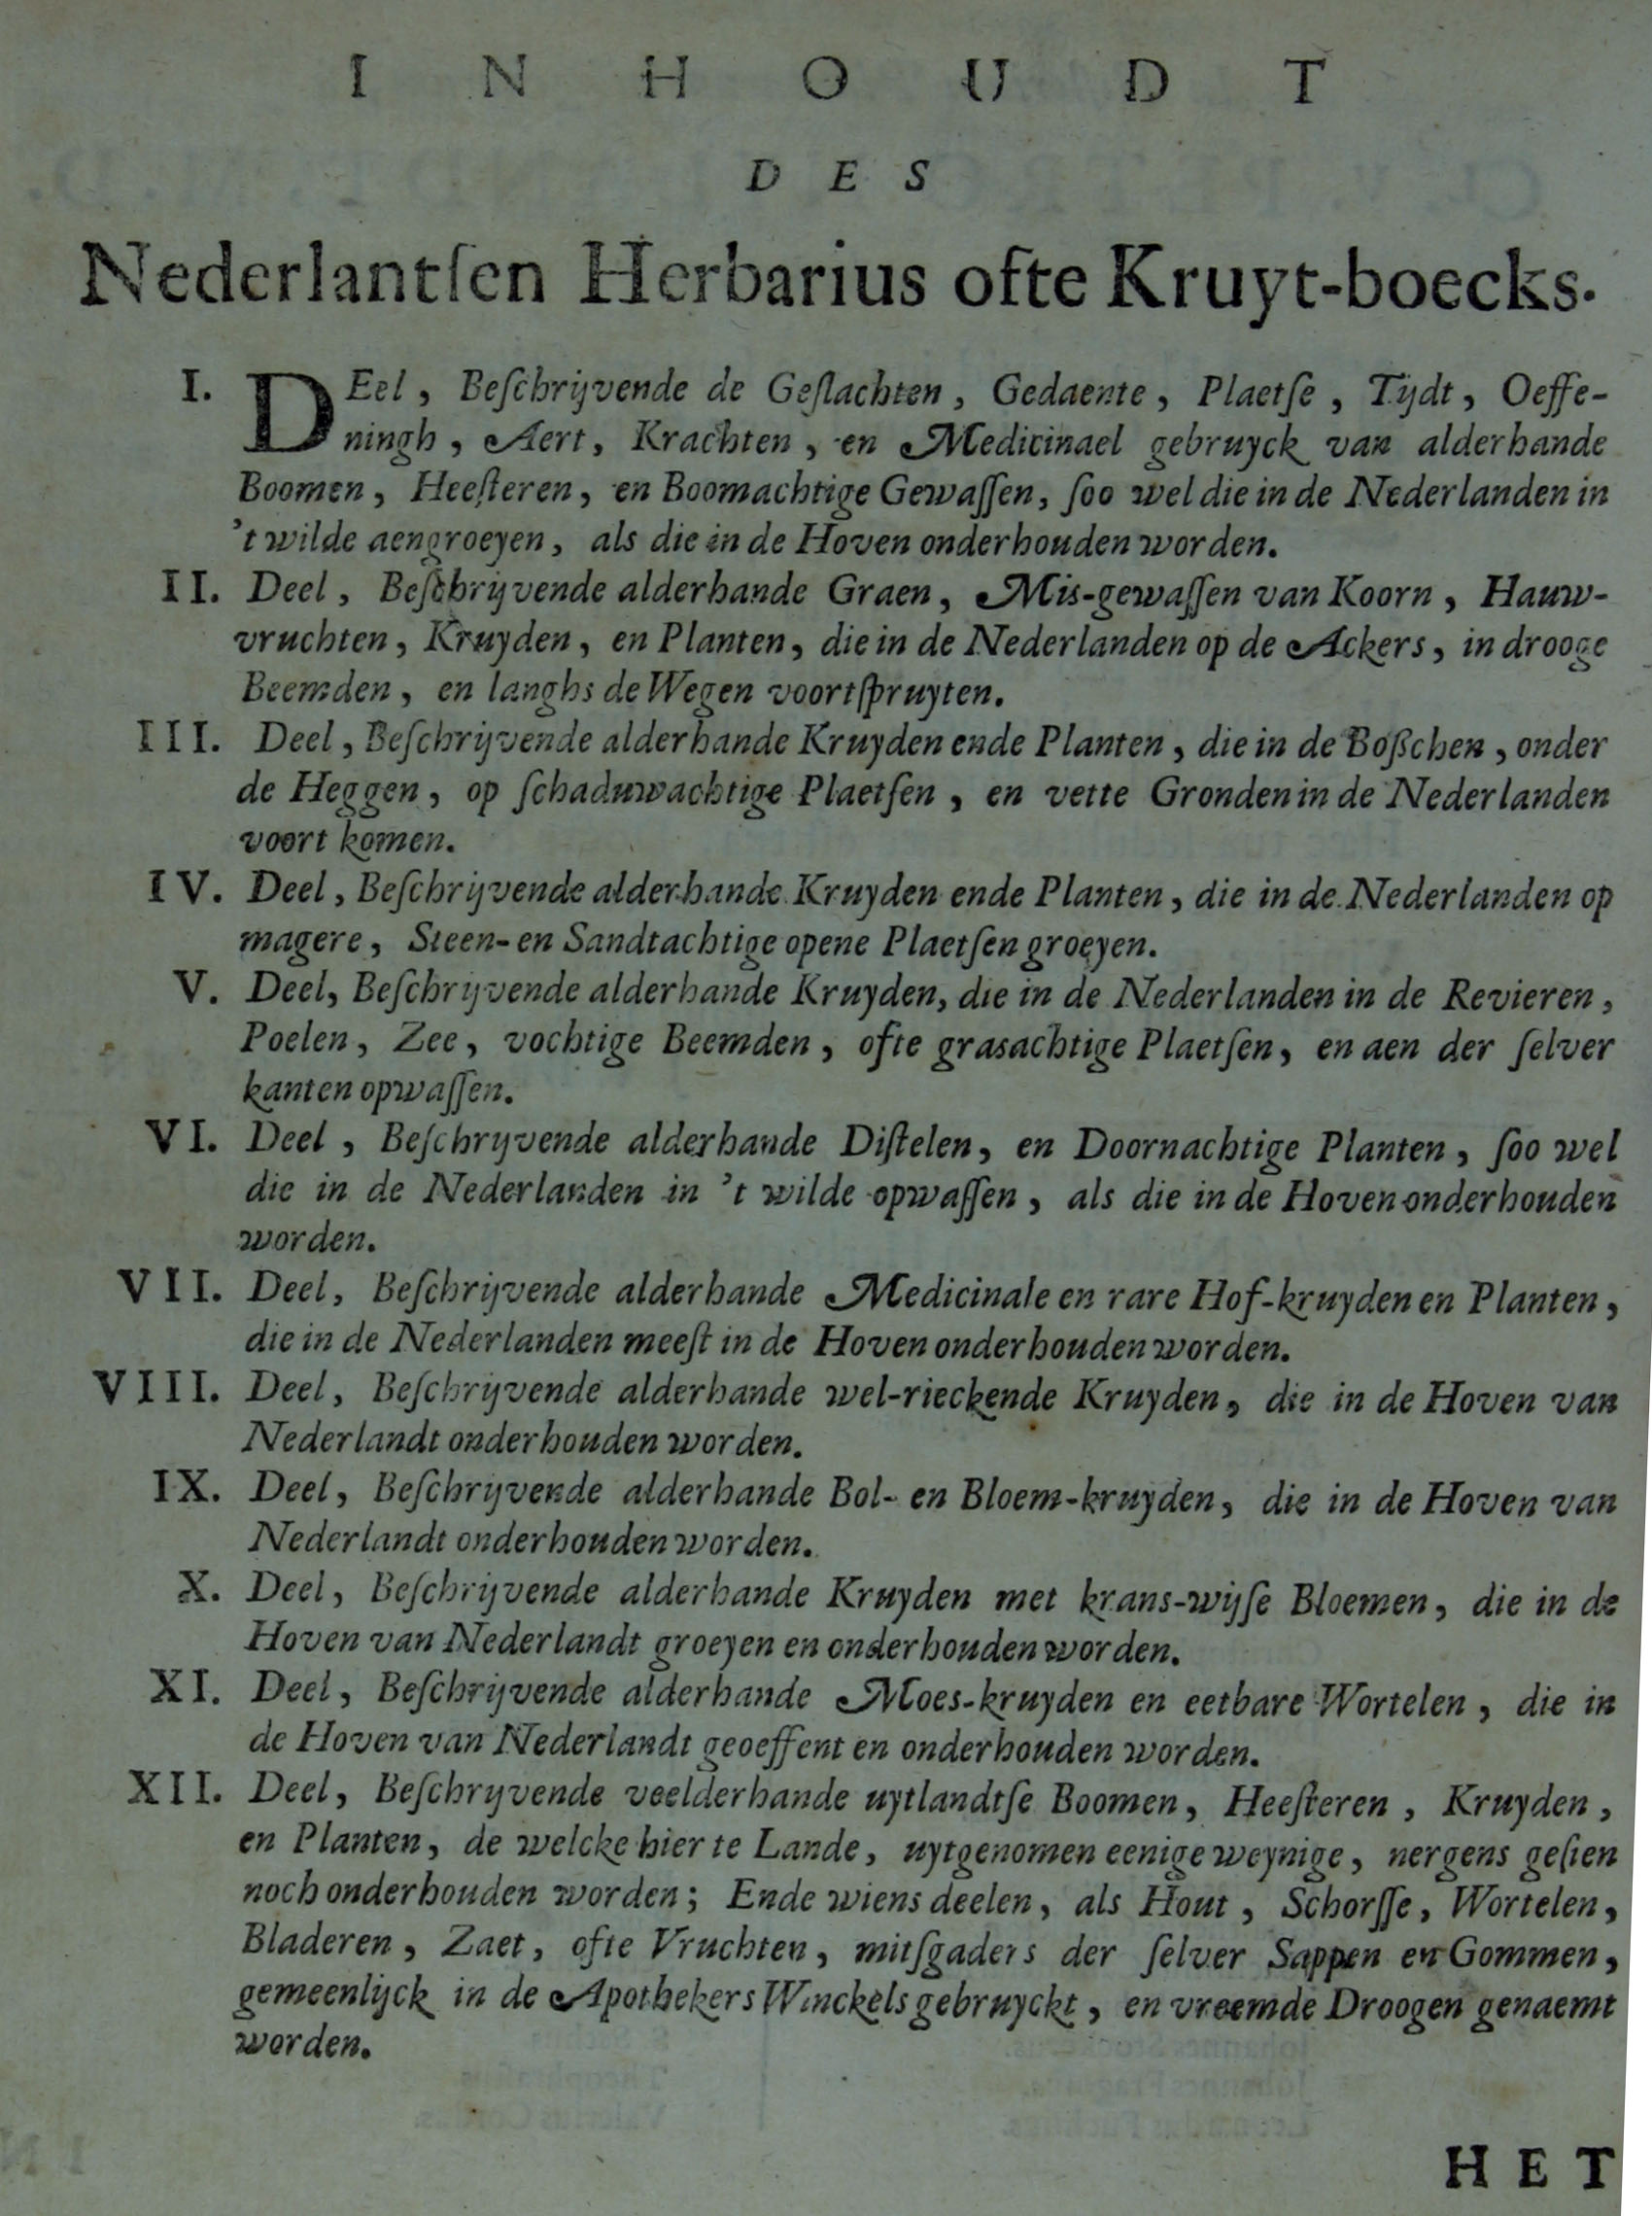 INHOUDT
DES
Nederlantſen Herbarius ofte Kruyt-boecks.
I. DEel, Beſchrijvende de Geſlachten, Gedaente, Plaetſe, Tijdt, Oeffe-
ningh, Aert, Krachten, en Medicinael gebruyck van alderhande
Boomen, Heeſteren, en Boomachtige Gewaſſen, ſoo wel die in de Nederlanden in
't wilde aengroeyen, als die in de Hoven onderhouden worden.
II. Deel, Beſchrijvende alderhande Graen, Mis-gewaſſen van Koorn, Hauw-
vruchten, Kruyden, en Planten, die in de Nederlanden op de Ackers, in drooge
Beemden, en langhs de Wegen voortſpruyten.
III. Deel, Beſchrijvende alderhande Kruyden ende Planten, die in de Boßchen, onder
de Heggen, op ſchaduwachtige Plaetſen, en vette Gronden in de Nederlanden
voort komen.
IV. Deel, Beſchrijvende alderhande Kruyden ende Planten, die in de Nederlanden op
magere, Steen- en Sandtachtige opene Plaetſen groeyen.
V. Deel, Beſchrijvende alderhande Kruyden, die in de Nederlanden in de Revieren,
Poelen, Zee, vochtige Beemden, ofte grasachtige Plaetſen, en aen der ſelver
kanten opwaſſen.
VI. Deel, Beſchrijvende alderhande Diſtelen, en Doornachtige Planten, ſoo wel
die in de Nederlanden in 't wilde opwaſſen, als die in de Hoven onderhouden
worden.
VII. Deel, Beſchrijvende alderhande Medicinale en rare Hof-kruyden en Planten,
die in de Nederlanden meeſt in de Hoven onderhouden worden.
VIII. Deel, Beſchrijvende alderhande wel-rieckende Kruyden, die in de Hoven van
Nederlandt onderhouden worden.
IX. Deel, Beſchrijvende alderhande Bol- en Bloem-kruyden, die in de Hoven van
Nederlandt onderhouden worden.
X. Deel, Beſchrijvende alderhande Kruyden met krans-wijſe Bloemen, die in de
Hoven van Nederlandt groeyen en onderhouden worden.
XI. Deel, Beſchrijvende alderhande Moes-kruyden en eetbare Wortelen, die in
de Hoven van Nederlandt geoeffent en onderhouden worden.
XII. Deel, Beſchrijvende veelderhande uytlandtſe Boomen, Heeſteren, Kruyden,
en Planten, de welcke hier te Lande, uytgenomen eenige weynige, nergens geſien
noch onderhouden worden; Ende wiens deelen, als Hout, Schorſſe, Wortelen,
Bladeren, Zaet, ofte Vruchten, mitſgaders der ſelver Sappen en Gommen,
gemeenlijck in de Apothekers Winckels gebruyckt, en vreemde Droogen genaemt
worden.
HET